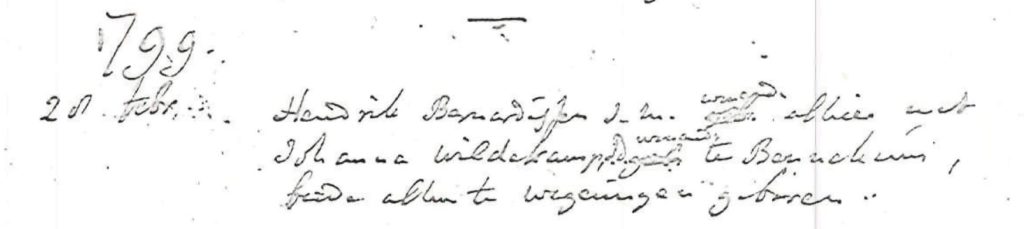 1799.
28 febr. Hendrik Barnardissen J.m. woond. alhier met
Johanna Wildekamp J.d. woond. te Bennekum,
beide alhier te wageningen geboren.